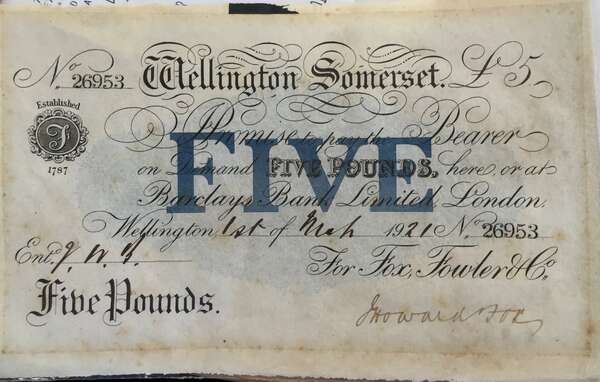 No. 26953 Wellington Somerset. £5
Established
F
1787
I Promise to pay the Bearer
on Demand FIVE POUNDS, here, or at
FIVE
Barclays Bank Limited, London.
Wellington 1st of March 1921 No. 26953
Entd. J. W. G.
For Fox, Fowler & Co.
Five Pounds.
J Howard Fox